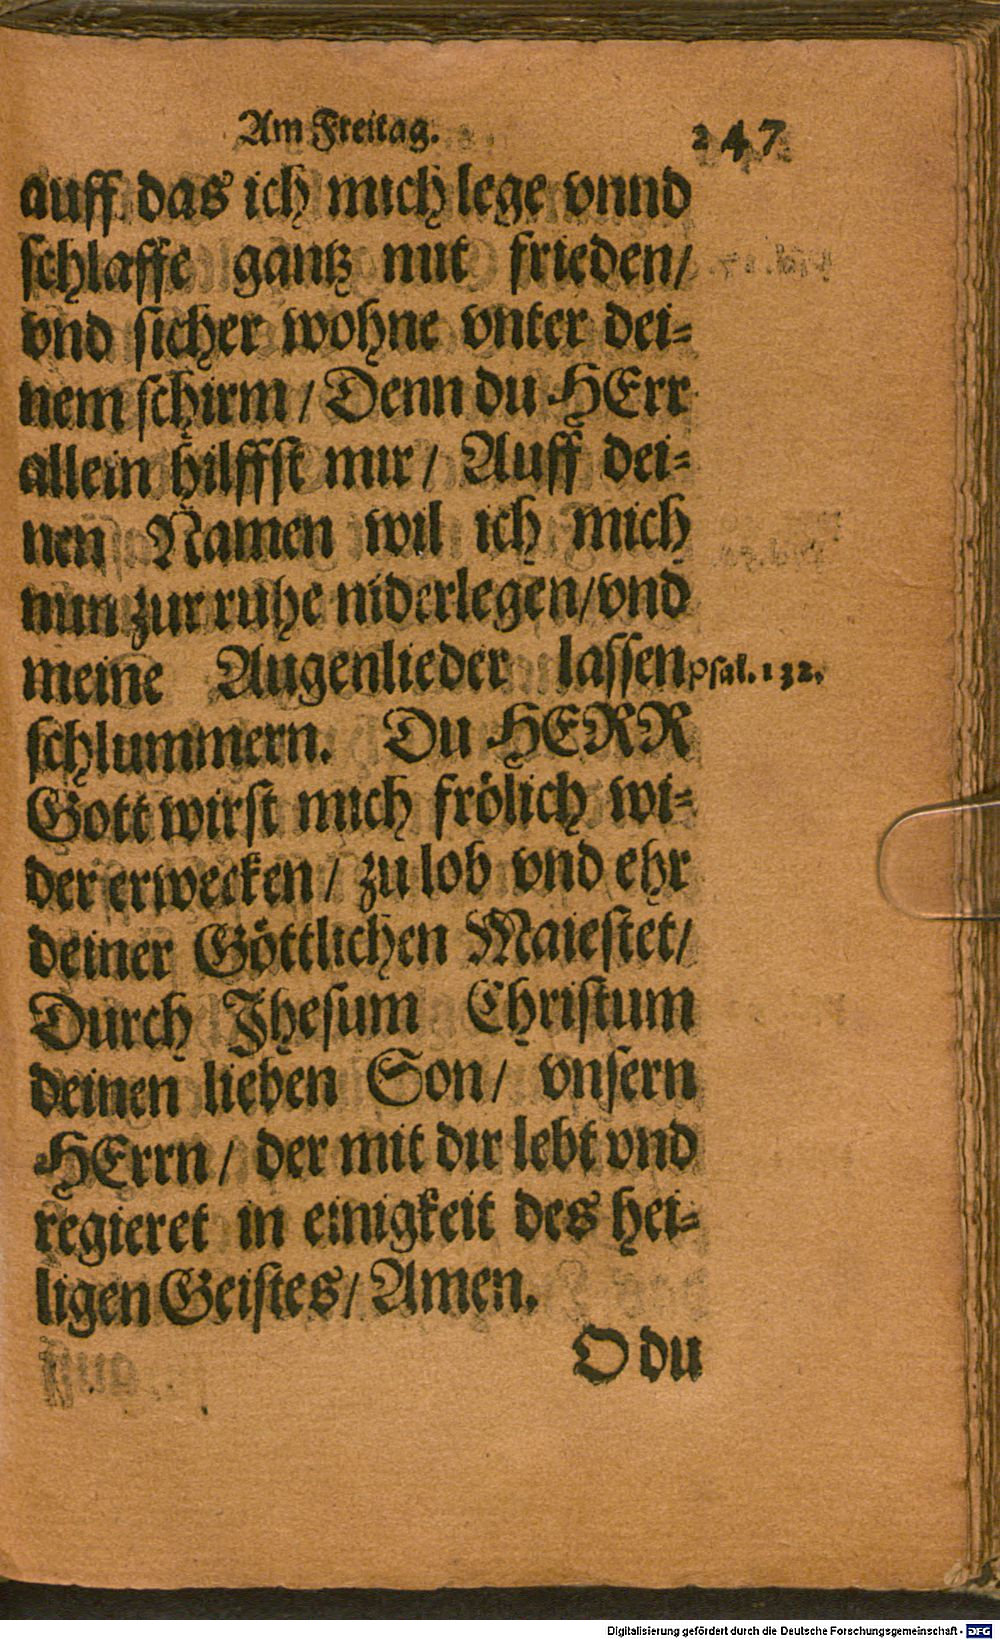 Am Freitag. 247
auff das ich mich lege vnnd
schlaffe gantz mit frieden/
vnd sicher wohne vnter dei=
nem schirm / Denn du HErr
allein hilffst mir / Auff dei=
nen Namen wil ich mich
nun zur ruhe niderlegen/vnd
meine Augenlieder lassen Psal. 132.
schlummern. Du HERR
Gott wirst mich frölich wi=
der erwecken / zu lob vnd ehr
deiner Göttlichen Maiestet/
Durch Jhesum Christum
deinen lieben Son/ vnsern
HErrn / der mit dir lebt vnd
regieret in einigkeit des hei=
ligen Geistes/ Amen.
O du
Digitalisierung gefördert durch die Deutsche Forschungsgemeinschaft - DFG